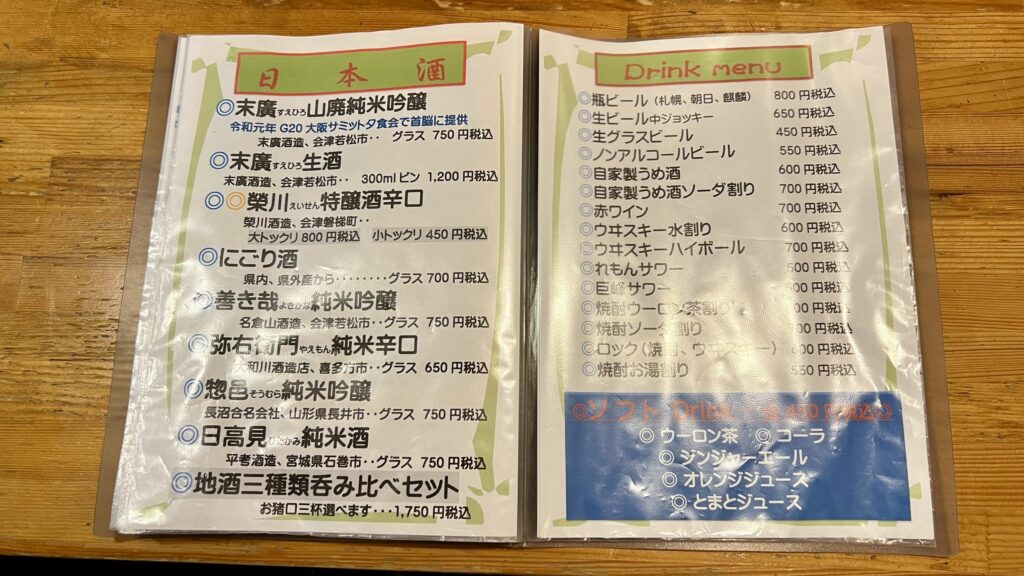 日本酒
◎末廣すえひろ山廃純米吟醸
令和元年 G20 大阪サミット夕食会で首脳に提供
末廣酒造、会津若松市‥ グラス 750円税込
◎末廣すえひろ生酒
末廣酒造、会津若松市‥ 300mlビン 1,200円税込
◎◎榮川えいせん特醸酒辛口
榮川酒造、会津磐梯町‥
大トックリ800円税込 小トックリ450円税込
◎にごり酒
県内、県外産から‥‥‥‥グラス700円税込
◎善き哉よきかな純米吟醸
名倉山酒造、会津若松市‥グラス 750円税込
◎弥右衛門やえもん純米辛口
和川酒造店、喜多方市‥グラス 650円税込
◎惣邑そうむら純米吟醸
長沼合名会社、山形県長井市‥グラス 750円税込
◎日高見ひたかみ純米酒
平考酒造、宮城県石巻市‥グラス 750円税込
◎地酒三種類呑み比べセット
お猪口三杯選べます‥‥1,750円税込
Drink menu
◎瓶ビール(札幌、朝日、麒麟) 800円税込
◎生ビール中ジョッキー 650円税込
◎生グラスビール 450円税込
◎ノンアルコールビール 550円税込
◎自家製うめ酒 600円税込
◎自家製うめ酒ソーダ割り 700円税込
◎赤ワイン 700円税込
◎ウヰスキー水割り 600円税込
◎ウヰスキーハイボール 700円税込
◎れもんサワー 500円税込
◎巨峰サワー 500円税込
◎焼酎ウーロン茶割り 円税込
◎焼酎ソーダ割り 円税込
◎ロック(焼酎、ウヰスキー) 600円税込
◎焼酎お湯割り 550円税込
◎ソフト Drink‥各450円税込◎
◎ウーロン茶 ◎コーラ
◎ジンジャーエール
◎オレンジジュース
◎とまとジュース